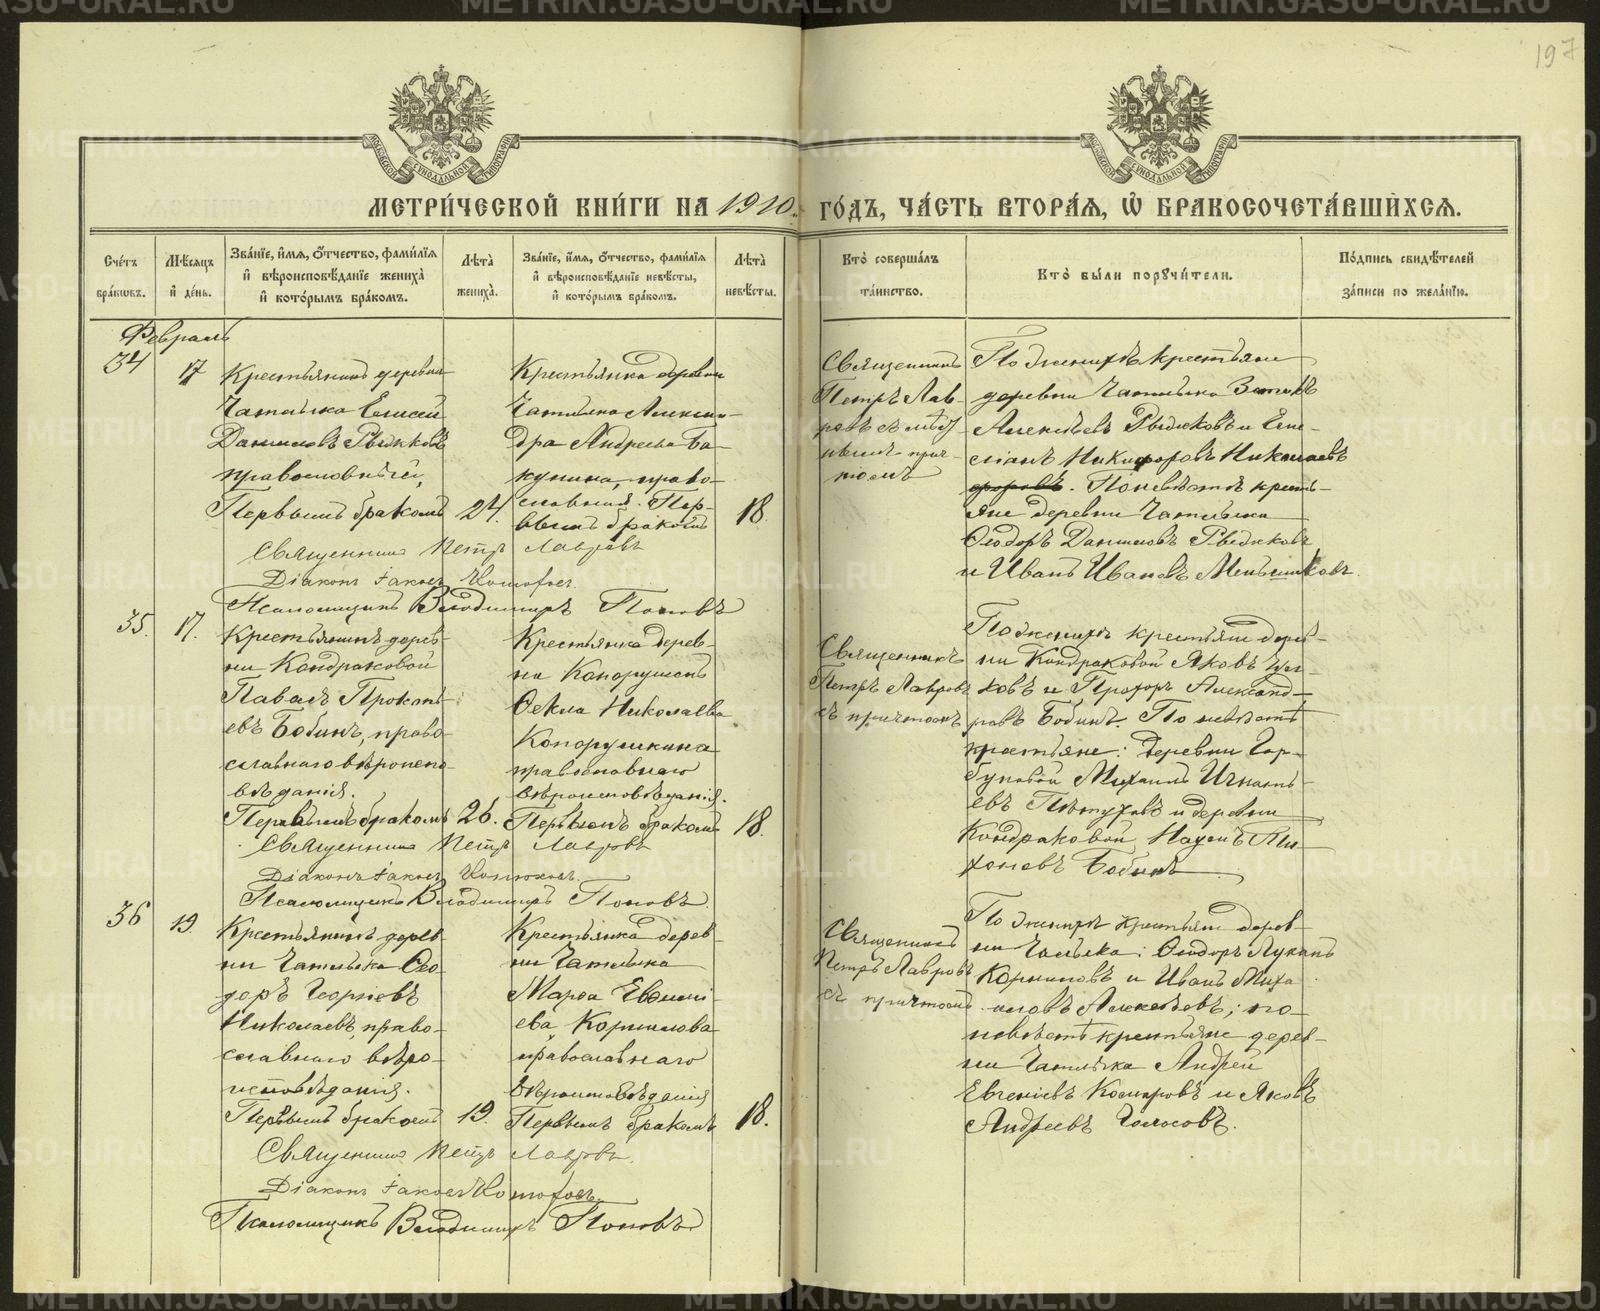 197
МЕТРИ́ЧЕСКОЙ КНИ́ГИ НА 1910 ГО́ДЪ, ЧА́СТЬ ВТОРА́Я, Ѿ БРАКОСОЧЕТА́ВШИХСЯ.
Сче́тъ бра́кѡвъ.
Мѣ́сяцъ и де́нь.
Зва́нїе, и́мя, ѻ́тчество, фами́лїя и вѣроисповѣ́данїе жениха̀ и кото́рымъ бра́комъ.
Лѣ́та жениха̀.
Зва́нїе, и́мя, ѻ́тчество, фами́лїя и вѣроисповѣ́данїе невѣ́сты, и кото́рымъ бра́комъ.
Лѣ́та невѣ́сты.
Кто̀ соверша́лъ та́инство.
Кто̀ бы́ли поручи́тели.
По́дпись свидѣ́телей за́писи по жела́нїю.
Февраль
34
17
Крестьянинъ деревни
Чатлыка Елисей
Даниловъ Рыжковъ
православный,
Первымъ бракомъ
24.
Крестьянка деревни
Чатлыка Алексан-
дра Андреева Ба-
кунина, право-
славная. Пер-
вымъ бракомъ
18
Священникъ
Петръ Лав-
ровъ съ
причтомъ
По женихѣ крестьяне
деревни Чатлыка
Алексѣевъ Рыжковъ и Еме-
лiанъ Никифоровъ Николаевъ
. По невѣстѣ кресть-
яне деревни Чатлыка
Ѳеодоръ Даниловъ Рыжковъ
и Иванъ Ивановъ Меньшиковъ.
Священникъ Петръ Лавровъ
Дiаконъ Iаковъ
Псаломщикъ Владимиръ Поповъ
35.
17.
Крестьянинъ дерев-
ни Кондраковой
Павелъ Прокопь-
евъ Бобинъ, право-
славнаго вѣроиспо-
вѣданiя.
Первымъ бракомъ
26.
Крестьянка дерев-
ни
Ѳекла Николаева
Копорушкина
православнаго
вѣроисповѣданiя.
Первымъ бракомъ
18.
Священникъ
Петръ Лавровъ
съ причтомъ
По женихѣ крестьяне дерев-
ни Кондраковой Яковъ
и Прохоръ Александ-
ровъ Бобинъ. По невѣстѣ
крестьяне: деревни Гор-
буновой Михаилъ Игнать-
евъ Пѣтуховъ и деревни
Кондраковой
Бобинъ
Священникъ Петръ Лавровъ
Дiаконъ Iаковъ
Псаломщикъ Владимиръ Поповъ
36
19.
Крестьянинъ дерев-
ни Чатлыка Ѳео-
доръ Георгiевъ
Николаевъ, право-
славнаго вѣро-
исповѣданiя.
Первымъ бракомъ
19.
Крестьянка дерев-
ни Чатлыка
Марѳа Евѳимi-
ева Корнилова
православнаго
вѣроисповѣданiя
Первымъ бракомъ
18.
Священникъ
Петръ Лавровъ
съ причтомъ
По женихѣ крестьяне дерев-
ни Чатлыка: Ѳеодоръ Лукинъ
Корниловъ и Иванъ Миха-
иловъ Алексѣевъ; по
невѣстѣ крестьяне дерев-
ни Чатлыка Андрей
Евгенiевъ и Яковъ
Андреевъ Голосовъ.
Священникъ Петръ Лавровъ.
Дiаконъ Iаковъ
Псаломщикъ Владимиръ Поповъ
METRIKI.GASO-URAL.RU